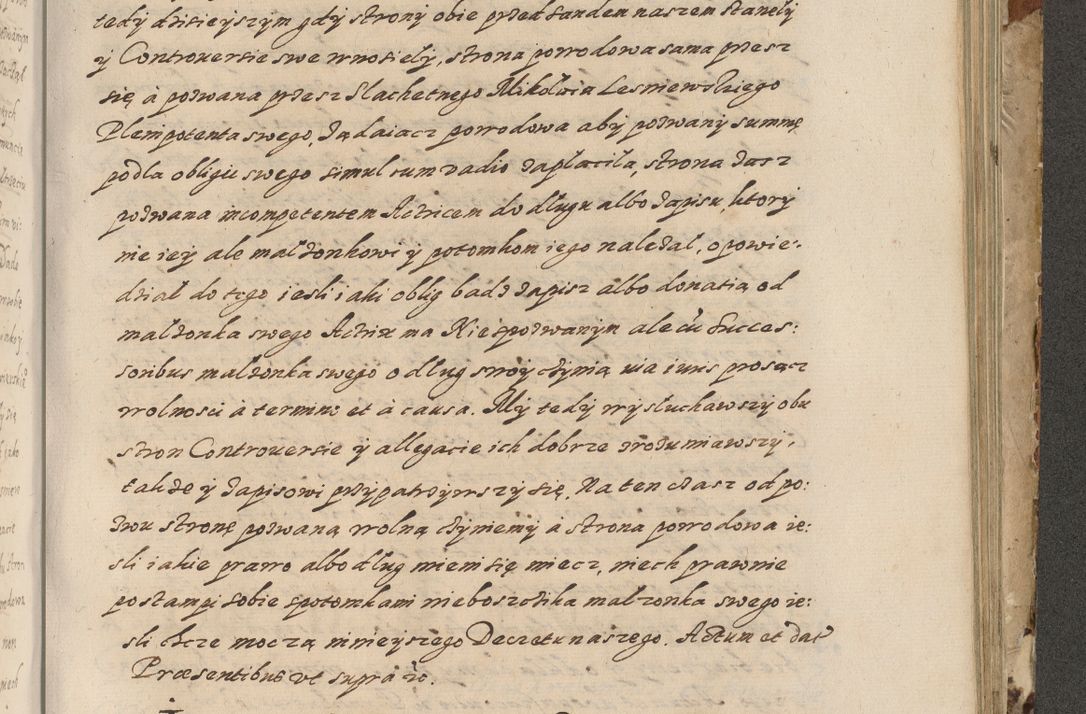 tedy dzisieyszym gdy strony obie przed sandem naszem stanęły
y Controuersie swe wnosiely, strona powodowa sama przesz
się à pozwana przesz Slachetnego Mikołaia Lesniewskiego
Plenipotenta swego, Ządaiacz powodowa aby pozwany summę
podla obligu swego simul cum vadio zapłaciła, strona zasz
pozwana incompetentem Actricem do długu albo zapisu, ktory
nie iey ale małzonkowi y potomkom iego nalezał, opowie-
dział do tego iesli iaki oblig badz zapisz albo donatią od
małzonka swego Actrix ma Nie spozwanym ale cū Succes:
soribus małzonka swego o dług swoy czynią uia iuris prosącz
wolnosci à termino et à causa. My tedy wysłuchawszy obu
stron Controuersie y allegacie ich dobrze zrozumiawszy,
takze y zapisowi przypatrzywszy się, Na ten czasz od po:
zwu stronę pozwaną wolną czyniemy à strona powodowa ie:
sli iakie prawo albo dług mieni się miecz, niech prawnie
postampi sobie spotomkami nieboszczika małzonka swego ie:
sli chcze moczą ninieyszego Decretu naszego. Actum et dat
Præsentibus vt supra